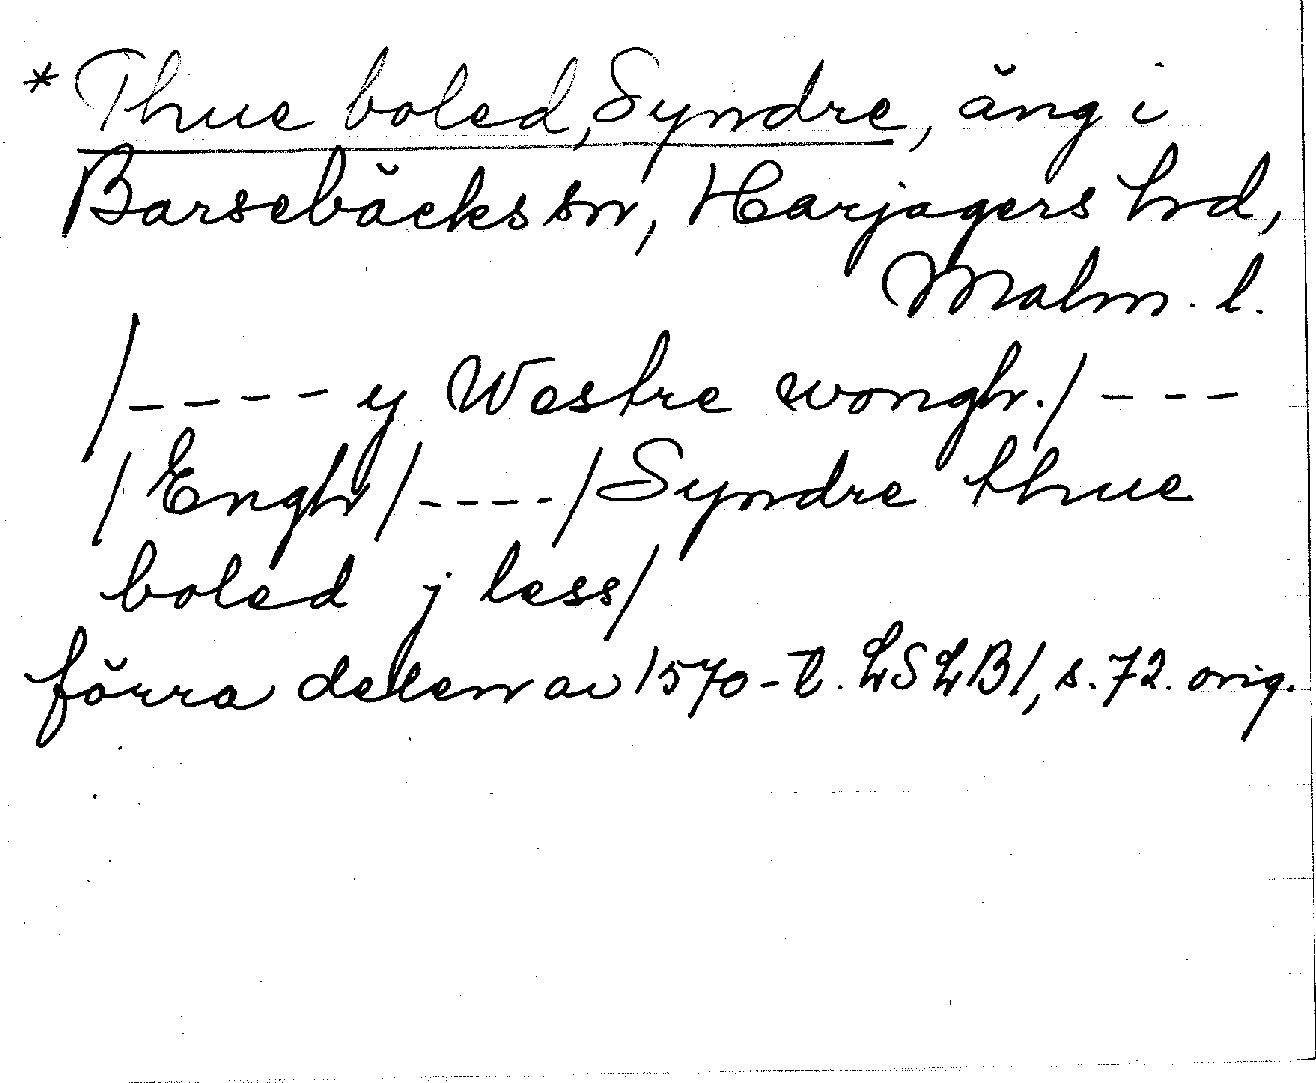 * Thue boled, Syndre, äng i
Barsebäcks sn, Harjagers hrd,
Malm. l.
/---- y Westre wongh./ ---
/Engh/----/Syndre thue
boled j less/
förra delen av 1570-t. LSLB1, s. 72. orig.